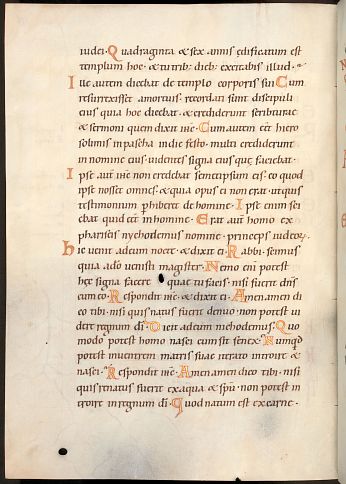 iudei · Quadraginta & sex annis edificatum est
templum hoc · & tu trib; dieb; excitabis illud ·
Ille autem dicebat de templo corporis sui · Cum
resurrexisset a mortuis · recordati sunt discipuli
eius quia hoc dicebat · & crediderunt scripturae
& sermoni quem dixit ihc · Cum autem eet hiero
solimis in pascha in die festo · multi crediderunt
in nomine eius · uidentes signa eius que faciebat ·
Ipse aut ihc non credebat semetipsum eis · eo quod
ipse nosset omnes · & quia opus ei non erat · ut quis
testimonium phiberet de homine · Ipse enim scie
bat quid eet in homine · Erat aut homo ex
phariseis nychodemus nomine · princeps iudeor ·
hic uenit ad eum nocte · & dixit ei · Rabbi · scimus
quia a do uenisti magister · Nemo eni potest
hec signa facere quae tu facis · nisi fuerit dns
cum eo · Respondit ihc · & dixit ei · Amen amen di
co tibi · nisi quis natus fuerit denuo · non potest ui
dere regnum di · Dicit ad eum nichodemus · Quo
modo potest homo nasci cum sit senex · Numqd
potest in uentrem matris suae iterato introire &
nasci · Respondit ihc · Amen amen dico tibi · nisi
quis renatus fuerit ex aqua & spu · non potest in
troire in regnum di · Quod natum est ex carne ·